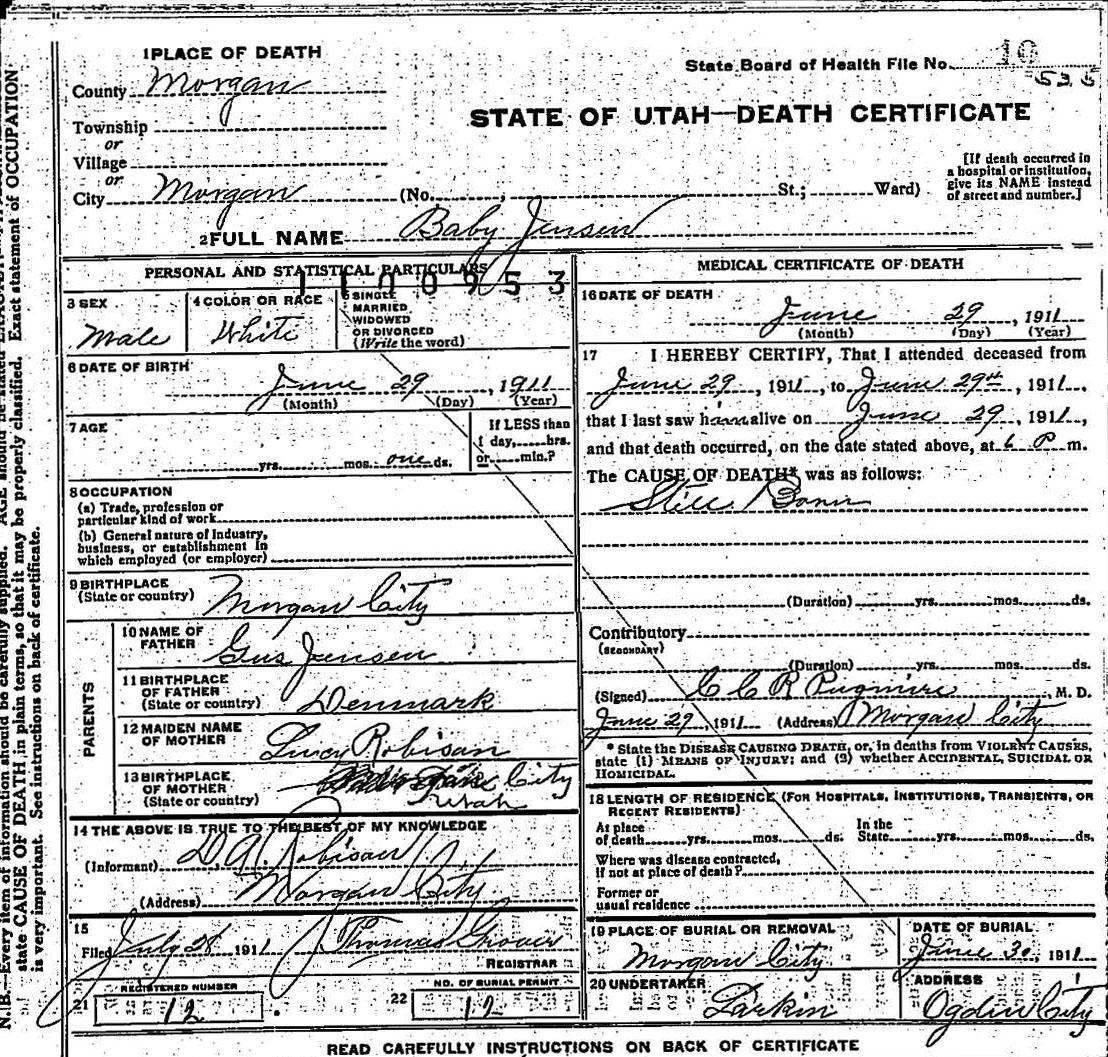 1 PLACE OF DEATH
State Board of Health File No. 10
535
County Morgan
STATE OF UTAH—DEATH CERTIFICATE
Township
or
Village
or
City Morgan (No. , St.; Ward)
[If death occurred in
a hospital or institution,
give its NAME instead
of street and number.]
2 FULL NAME Baby Jensen
PERSONAL AND STATISTICAL PARTICULARS
1100953
3 SEX
Male
4 COLOR OR RACE
White
5 SINGLE
MARRIED
WIDOWED
OR DIVORCED
(Write the word)
6 DATE OF BIRTH
June 29, 1911
(Month) (Day) (Year)
7 AGE
yrs. mos. one ds.
If LESS than
1 day, hrs.
or min.?
8 OCCUPATION
(a) Trade, profession or
particular kind of work
(b) General nature of Industry,
business, or establishment in
which employed (or employer)
9 BIRTHPLACE
(State or country) Morgan City
PARENTS
10 NAME OF
FATHER
Gus Jensen
11 BIRTHPLACE
OF FATHER
(State or country) Denmark
12 MAIDEN NAME
OF MOTHER
Lucy Robisan
13 BIRTHPLACE
OF MOTHER
(State or country)
City
Utah
14 THE ABOVE IS TRUE TO THE BEST OF MY KNOWLEDGE
(Informant) D. A. Robisan
(Address) Morgan City
15
Filed July 28 1911 Thomas Grover
REGISTRAR
21 REGISTERED NUMBER
12
22 NO. OF BURIAL PERMIT
12
MEDICAL CERTIFICATE OF DEATH
16 DATE OF DEATH
June 29, 1911
(Month) (Day) (Year)
17 I HEREBY CERTIFY, That I attended deceased from
June 29, 1911, to June 29th, 1911,
that I last saw him alive on June 29, 1911,
and that death occurred, on the date stated above, at 6 P m.
The CAUSE OF DEATH* was as follows:
Still Born
(Duration) yrs. mos. ds.
Contributory
(SECONDARY)
(Duration) yrs. mos. ds.
(Signed) C C R Pugmire, M. D.
June 29, 1911 (Address) Morgan City
* State the DISEASE CAUSING DEATH, or, in deaths from VIOLENT CAUSES,
state (1) MEANS OF INJURY; and (2) whether ACCIDENTAL, SUICIDAL OR
HOMICIDAL.
18 LENGTH OF RESIDENCE (FOR HOSPITALS, INSTITUTIONS, TRANSIENTS, OR
RECENT RESIDENTS)
At place
of death yrs. mos. ds.
In the
State yrs. mos. ds.
Where was disease contracted,
If not at place of death?
Former or
usual residence
19 PLACE OF BURIAL OR REMOVAL
Morgan City
DATE OF BURIAL
June 30, 1911
20 UNDERTAKER
Larkin
ADDRESS
Ogden City
READ CAREFULLY INSTRUCTIONS ON BACK OF CERTIFICATE
N.B.—Every item of information should be carefully supplied. AGE should be stated
state CAUSE OF DEATH in plain terms, so that it may be properly classified. Exact statement of OCCUPATION
is very important. See instructions on back of certificate.